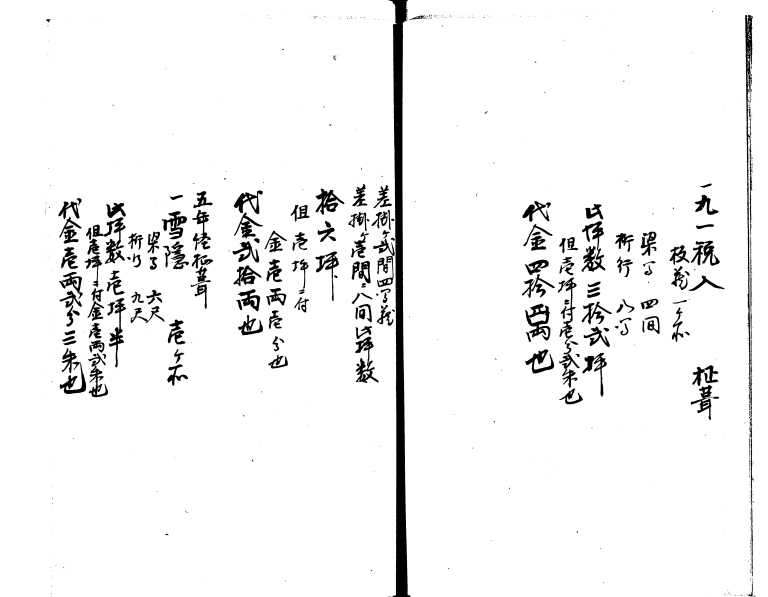 一九一税入　柾葺
板蔵一ヶ所
梁間 四間
桁行 八間
此坪数三拾弐坪
但壱坪ニ付壱分弐朱也
代金四拾両也
差掛ヶ弐間四間蔵
差掛ヶ壱間ニ八間此坪数
拾六坪
但壱坪ニ付
金壱両壱分也
代金弐拾両也
五年経柾葺
一雪隠　壱ヶ所
梁間 六尺
桁行 九尺
此坪数壱坪半
但壱坪ニ付金壱両弐朱也
代金壱両弐分三朱也